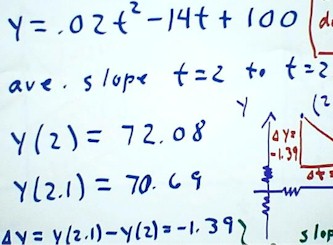 y = .02t² - 14t + 100
ave. slope t=2 to t=2
y(2) = 72.08
y(2.1) = 70.69
Δy = y(2.1) - y(2) = -1.39
y
(2
Δy=
-1.39
Δt=
slop